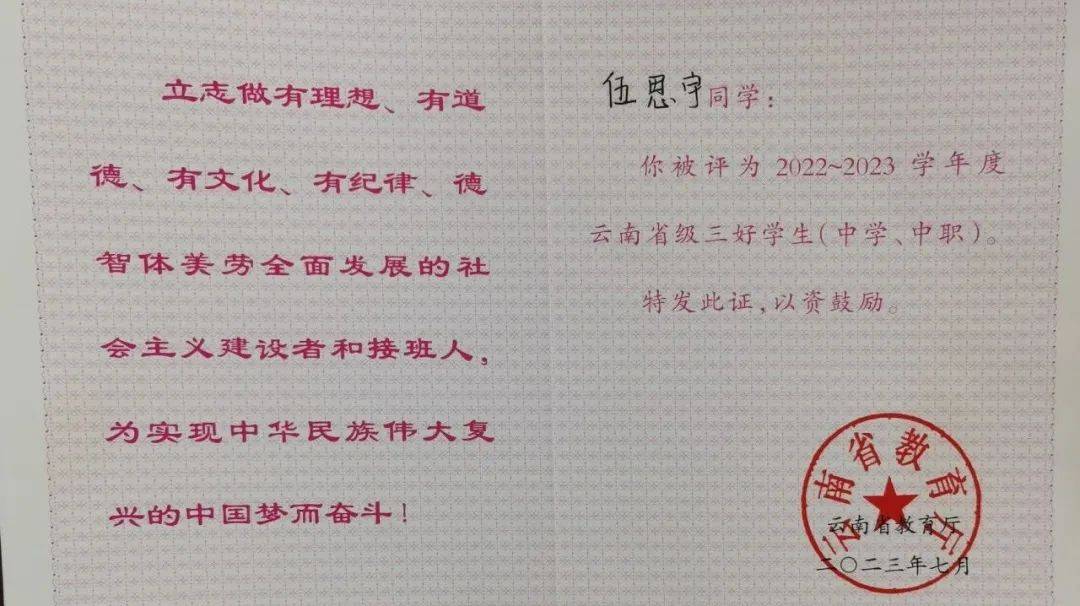 立志做有理想、有道
德、有文化、有纪律、德
智体美劳全面发展的社
会主义建设者和接班人，
为实现中华民族伟大复
兴的中国梦而奋斗！
伍思宇同学：
你被评为 2022~2023 学年度
云南省级三好学生(中学、中职)。
特发此证,以资鼓励。
云南省教育厅
云南省教育厅
二〇二三年七月